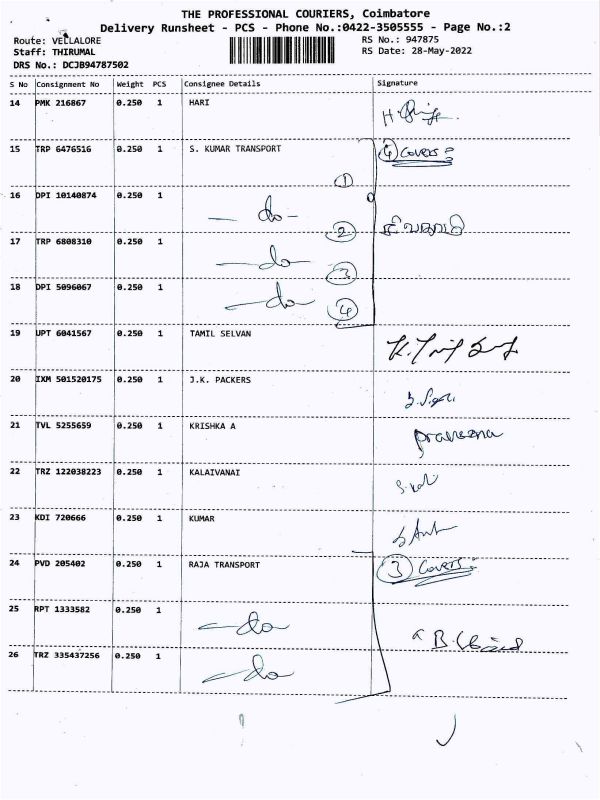 THE PROFESSIONAL COURIERS, Coimbatore
Delivery Runsheet - PCS - Phone No.:0422-3505555 - Page No.:2
Route: VELLALORE
RS No.: 947875
Staff: THIRUMAL
RS Date: 28-May-2022
DRS No.: DCJB94787502
S No Consignment No Weight PCS Consignee Details Signature
14 PMK 216867 0.250 1 HARI
15 TRP 6476516 0.250 1 S. KUMAR TRANSPORT 4 Covers
1
16 DPI 10140874 0.250 1 — do —
2
17 TRP 6808310 0.250 1 — do —
3
18 DPI 5096067 0.250 1 — do —
4
19 UPT 6041567 0.250 1 TAMIL SELVAN
20 IXM 501520175 0.250 1 J.K. PACKERS
21 TVL 5255659 0.250 1 KRISHKA A
22 TRZ 122038223 0.250 1 KALAIVANAI
23 KDI 720666 0.250 1 KUMAR
24 PVD 205402 0.250 1 RAJA TRANSPORT 3 Covers
25 RPT 1333582 0.250 1 — do
26 TRZ 335437256 0.250 1 — do